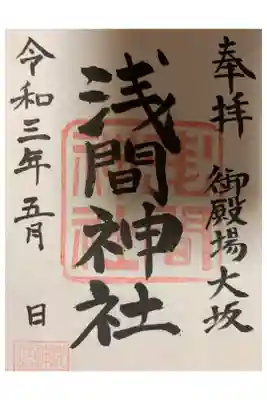 奉拝
御殿場大坂
浅間神社
令和三年五月 日